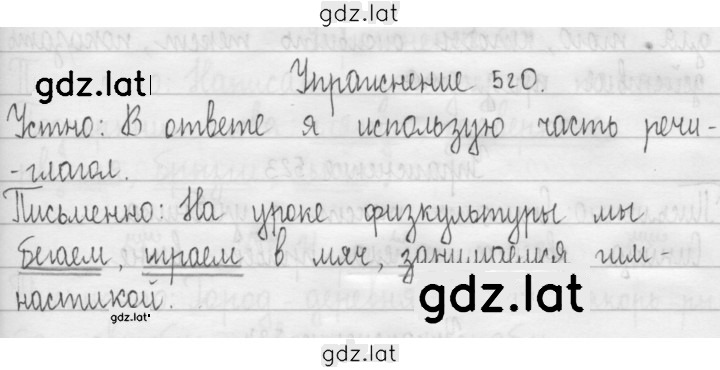 gdz.lat
Упражнение 520.
gdz.lat
Устно: В ответе я использую часть речи-
-глагол.
Письменно: На уроке физкультуры мы
бегаем, играем в мяч, занимаемся гим-
настикой.
gdz.lat
gdz.lat
gdz.lat